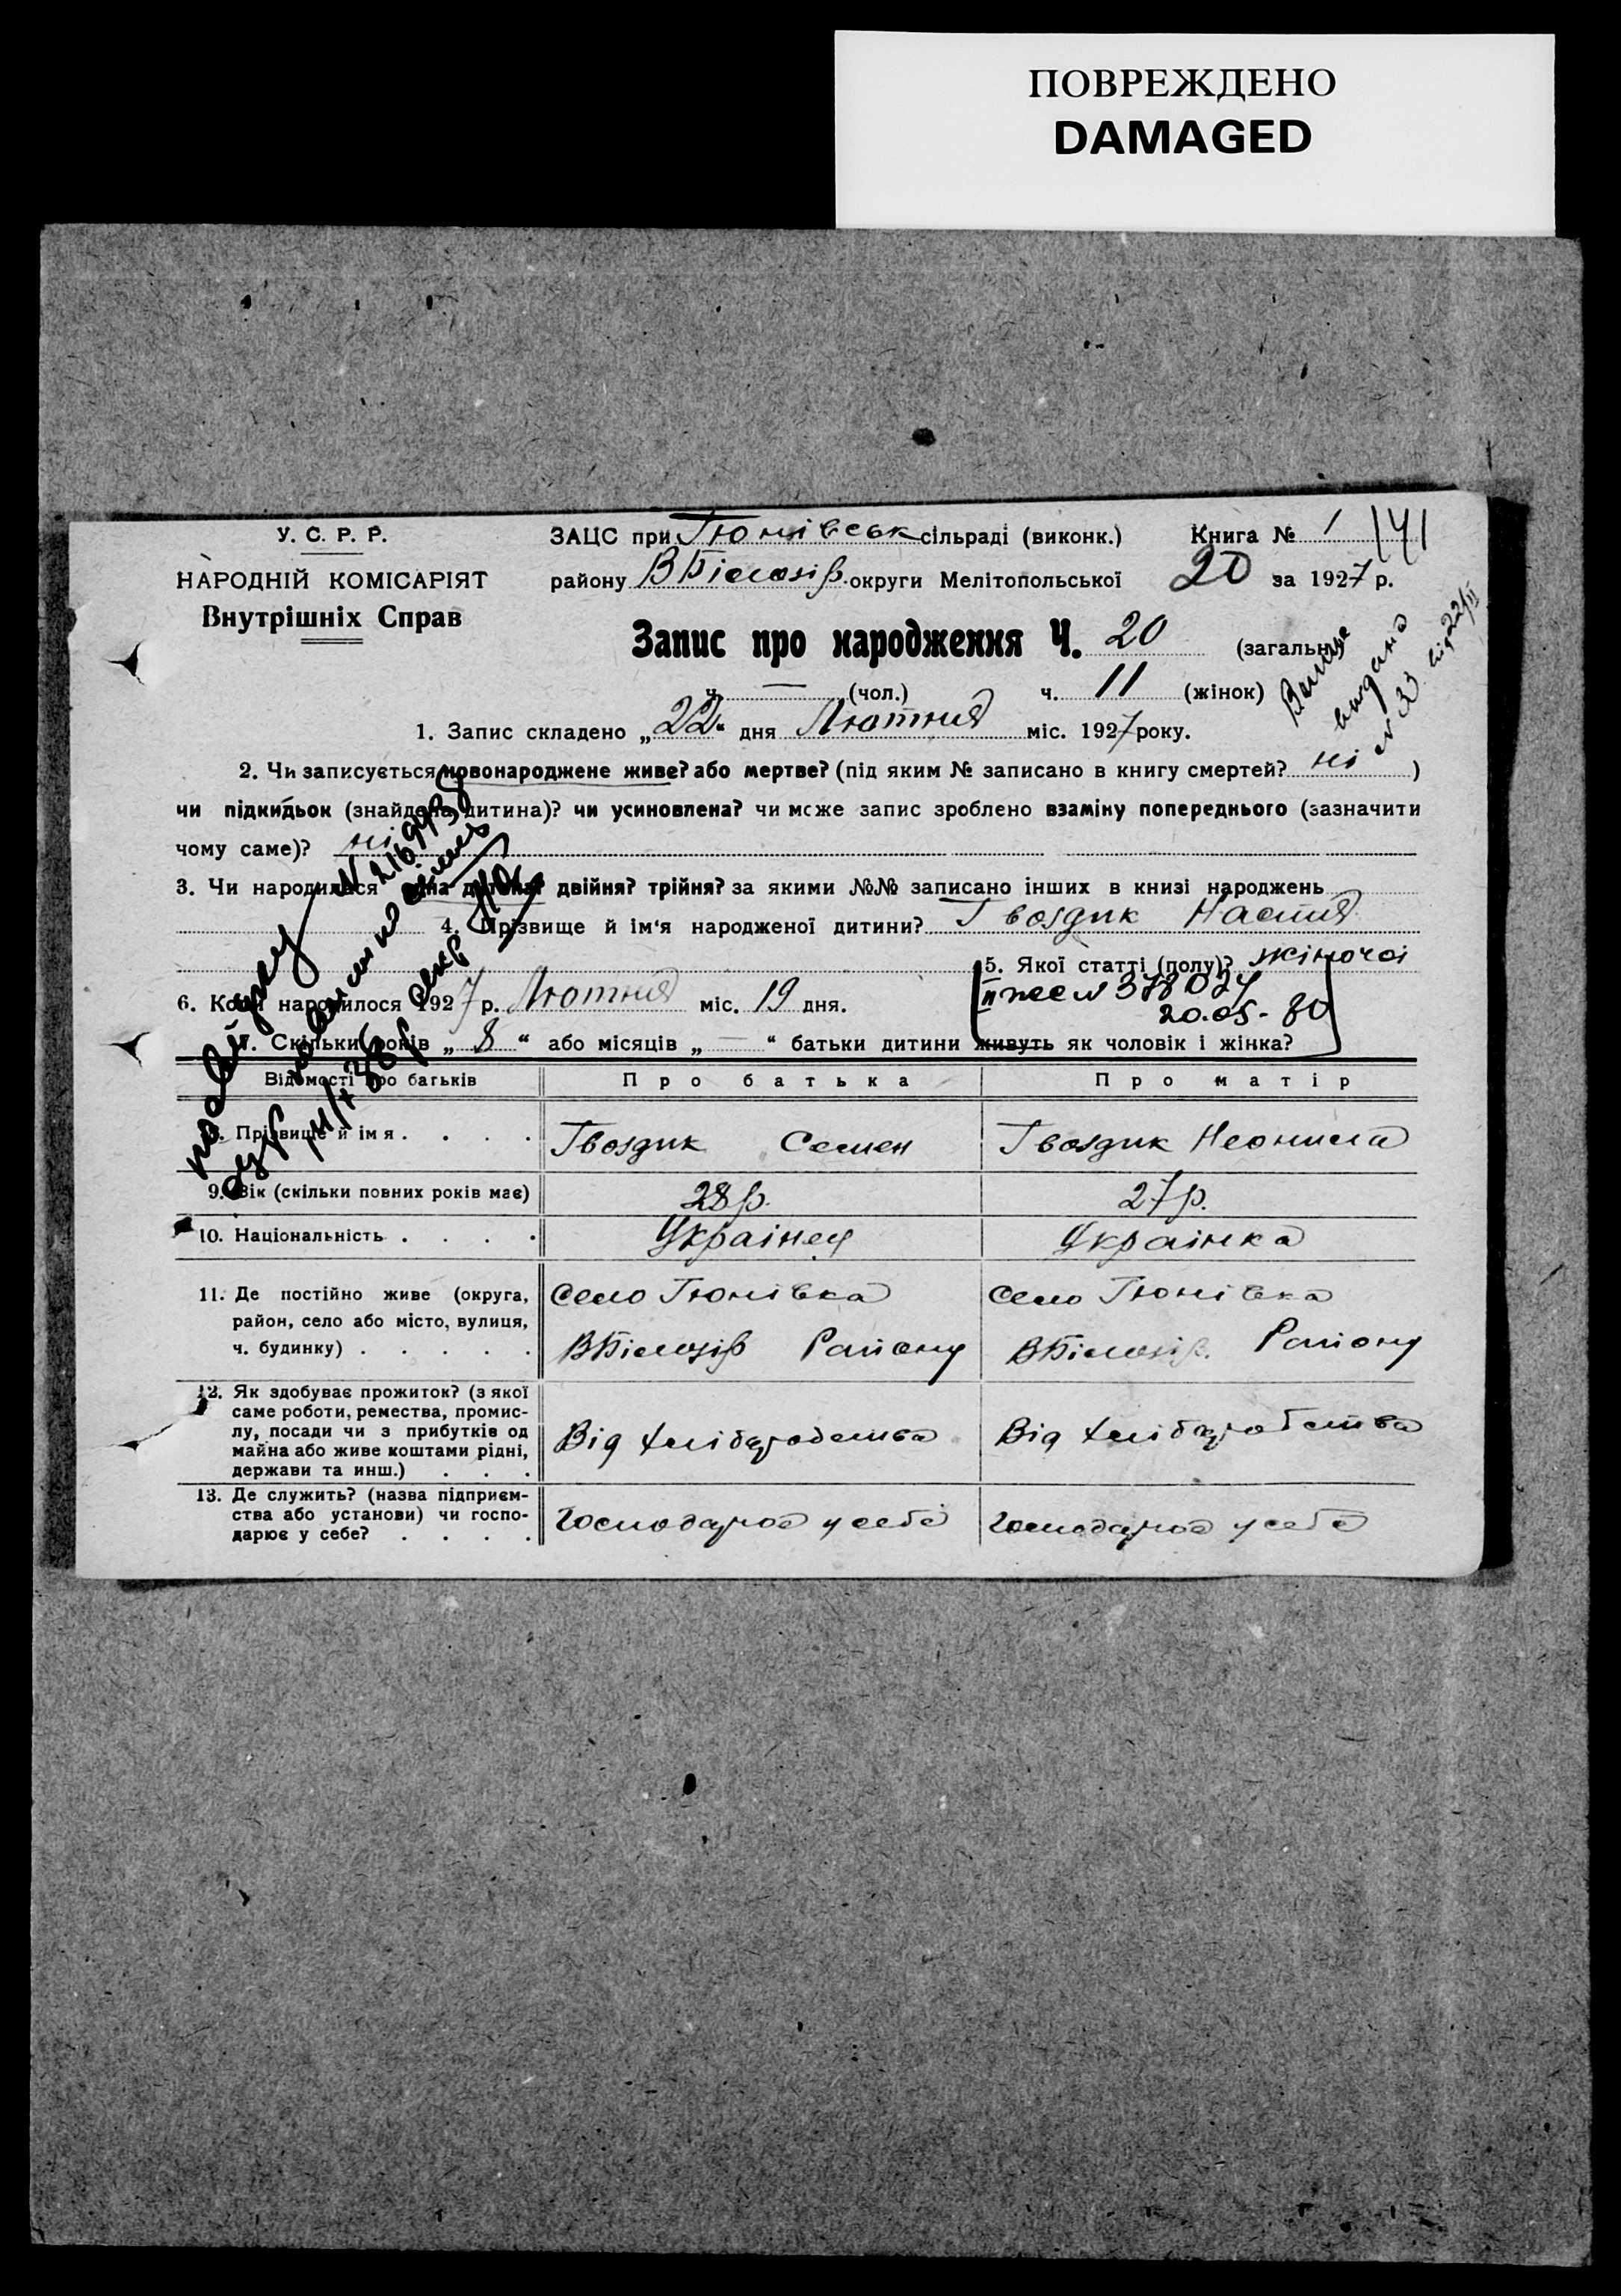 ПОВРЕЖДЕНО
DAMAGED
У. С. Р. Р.
НАРОДНІЙ КОМІСАРІЯТ
Внутрішніх Справ
ЗАЦС при Гюнівськ сільраді (виконк.) Книга № 1 141
району ВБілозір. округи Мелітопольської 20 за 1927 р.
Запис про народження Ч. 20 (загальне
ч. — (чол.) ч. 11 (жінок)
видано
1. Запис складено „22“ дня Лютня міс. 1927 року.
2. Чи записується новонароджене живе? або мертве? (під яким № записано в книгу смертей? ні )
чи підкидьок (знайдена дитина)? чи усиновлена? чи може запис зроблено взаміну попереднього (зазначити
чому саме)? ні
3. Чи народилася одна дитина? двійня? трійня? за якими №№ записано інших в книзі народжень
4. Прізвище й ім‘я народженої дитини? Гвоздик Настя
5. Якої статті (полу)? жіночоі
6. Коли народилося 1927 р. Лютня міс. 19 дня.
378034
20.05-80
7. Скільки років „ 8 “ або місяців „ — “ батьки дитини живуть як чоловік і жінка?
Відомості про батьків Про батька Про матір
8. Прізвище й імя . . . . Гвоздик Семен Гвоздик Неонила
9. Вік (скільки повних років має) 28 р. 27 р.
10. Національність . . . . Украінец Украінка
11. Де постійно живе (округа, район, село або місто, вулиця, ч. будинку) . . . . .
Село Гюнівка ВБілозір Району
Село Гюнівка ВБілозір. Району
12. Як здобуває прожиток? (з якої саме роботи, ремества, промислу, посади чи з прибутків од майна або живе коштами рідні, держави та инш.) . . .
Від хліборобства
Від хліборобства
13. Де служить? (назва підприємства або установи) чи господарює у себе? . . . .
Господарює у себе
Господарює у себе